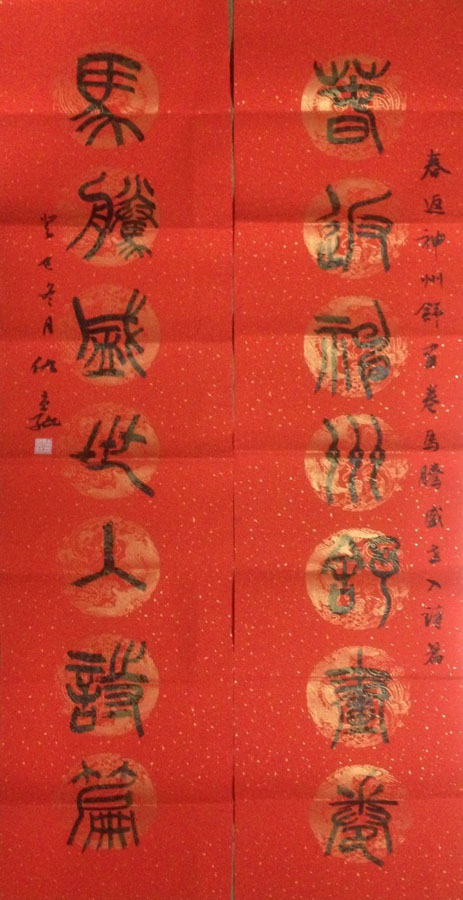 春返神州舒画卷马腾盛世入诗篇
春返神州舒畫卷
馬騰盛世入詩篇
癸巳冬月